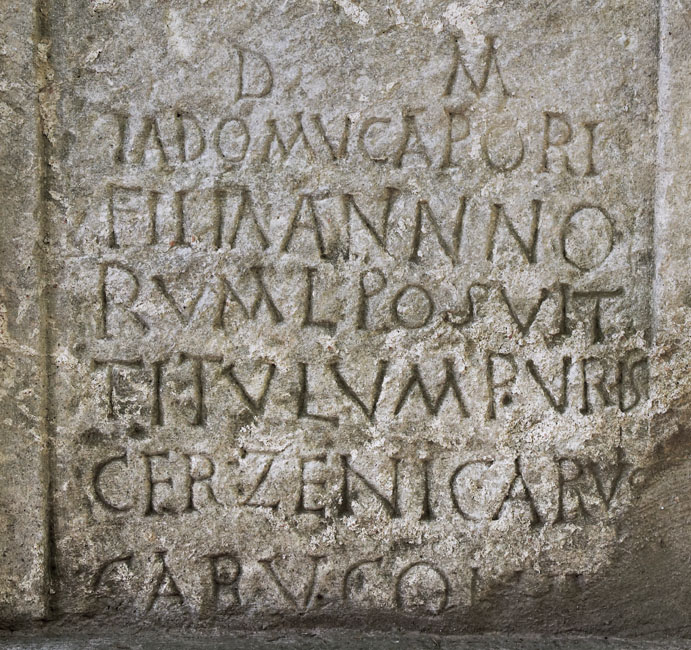 D. M
IADOMVCAPORI
FILIAANNNO
RVMLPOSVIT
T.ITVLVMP.VRIS
CERZENICARVS
CARV.CON